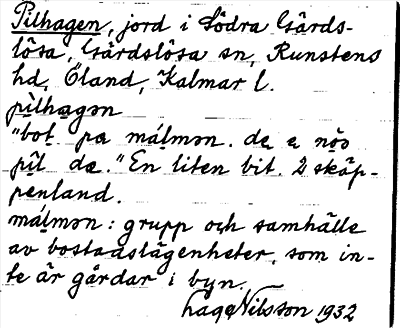 Pilhagen, jord i Södra Gärds-
lösa, Gärdslösa sn, Runstens
hd, Öland, Kalmar l.
pilhagən
"bot pa málmən. de e nös
pil de." En liten bit. 2 skäp-
penland.
málmən: grupp och samhälle
av bostadslägenheter, som in-
te är gårdar i byn.
Lage Nilsson 1932